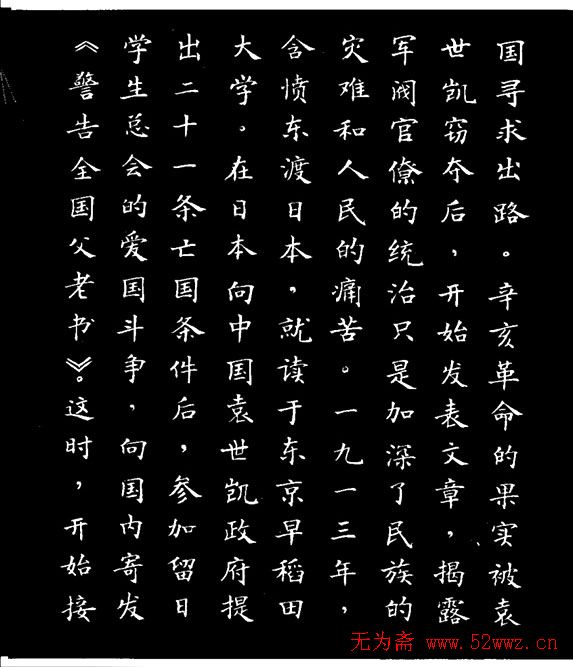 国寻求出路。辛亥革命的果实被袁
世凯窃夺后，开始发表文章，揭露
军阀官僚的统治只是加深了民族的
灾难和人民的痛苦。一九一三年，
含愤东渡日本，就读于东京早稻田
大学。在日本向中国袁世凯政府提
出二十一条亡国条件后，参加留日
学生总会的爱国斗争，向国内寄发
《警告全国父老书》。这时，开始接
无为斋 www.52wwz.cn